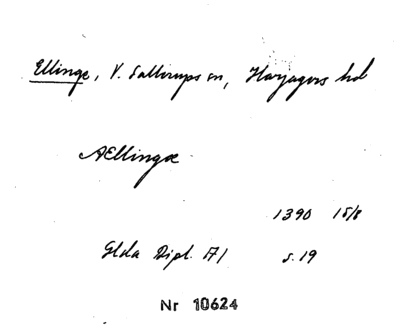 Ellinge, V. Sallerups sn, Harjagers hd
AEllingæ
1390 15/8
Glda Dipl. s. 19
Nr 10624